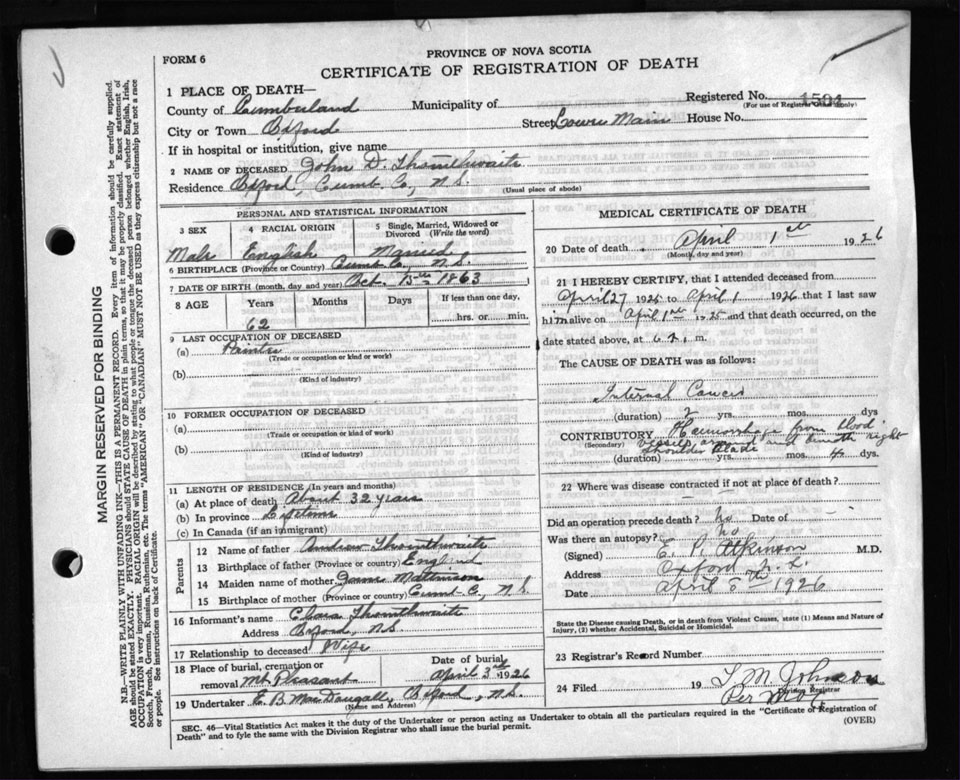 FORM 6
PROVINCE OF NOVA SCOTIA
CERTIFICATE OF REGISTRATION OF DEATH
1 PLACE OF DEATH—
Registered No. 1594
(For use of Registrar only)
County of Cumberland Municipality of
City or Town Oxford Street Lower Main House No.
If in hospital or institution, give name
2 NAME OF DECEASED John D. Thornthwaite
Residence Oxford, Cumb. Co., N.S.
(Usual place of abode)
PERSONAL AND STATISTICAL INFORMATION
3 SEX 4 RACIAL ORIGIN 5 Single, Married, Widowed or Divorced (Write the word)
Male English Married
6 BIRTHPLACE (Province or Country) Cumb. Co., N.S.
7 DATE OF BIRTH (month, day and year) Oct. 1863
8 AGE Years Months Days If less than one day,
62 hrs. or min.
9 LAST OCCUPATION OF DECEASED
(a) Painter
(Trade or occupation or kind or work)
(b)
(Kind of industry)
10 FORMER OCCUPATION OF DECEASED
(a)
(Trade or occupation or kind of work)
(b)
(Kind of industry)
11 LENGTH OF RESIDENCE (In years and months)
(a) At place of death About 32 years
(b) In province Lifetime
(c) In Canada (if an immigrant)
Parents
12 Name of father Andrew Thornthwaite
13 Birthplace of father (Province or country) England
14 Maiden name of mother Jane Mattinson
15 Birthplace of mother (Province or country) Cumb. Co., N.S.
16 Informant's name Clara Thornthwaite
Address Oxford, N.S.
17 Relationship to deceased Wife
18 Place of burial, cremation or removal Mt. Pleasant Date of burial April 3rd 1926
19 Undertaker E. B. MacDougall, Oxford, N.S.
(Name and Address)
MEDICAL CERTIFICATE OF DEATH
20 Date of death April 1st 1926
(Month, day and year)
21 I HEREBY CERTIFY, that I attended deceased from
April 27 1925 to April 1 1926 that I last saw
him alive on April 1st 1925 and that death occurred, on
date stated above, at 6 a.m.
The CAUSE OF DEATH was as follows:
Internal Cancer
(duration) 2 yrs. mos. dys
CONTRIBUTORY Haemorrhage from blood
(Secondary) vessels around and beneath right
shoulder blade
(duration) yrs. mos. 4 dys.
22 Where was disease contracted if not at place of death?
Did an operation precede death? No Date of
Was there an autopsy? No
(Signed) E. P. Atkinson M.D.
Address Oxford N.S.
Date April 5th 1926
State the Disease causing Death, or in death from Violent Causes, state (1) Means and Nature of
Injury, (2) whether Accidental, Suicidal or Homicidal.
23 Registrar's Record Number
24 Filed 19 T. M. Johnson
Division Registrar
Per
SEC. 46—Vital Statistics Act makes it the duty of the Undertaker or person acting as Undertaker to obtain all the particulars required in the "Certificate of Registration of
Death" and to fyle the same with the Division Registrar who shall issue the burial permit.
(OVER)
MARGIN RESERVED FOR BINDING
N.B.—WRITE PLAINLY WITH UNFADING INK—THIS IS A PERMANENT RECORD. Every item of information should be carefully supplied.
AGE should be stated EXACTLY. PHYSICIANS should STATE CAUSE OF DEATH in plain terms, so that it may be properly classified. Exact statement of
OCCUPATION is very important. RACIAL ORIGIN will be described by stating to what people or tongue the deceased person belonged, whether English, Irish,
Scotch, French, German, Russian, Ruthenian, etc. The terms "AMERICAN" OR "CANADIAN" MUST NOT BE USED as they express citizenship but not a race
of people. See instructions on back of Certificate.